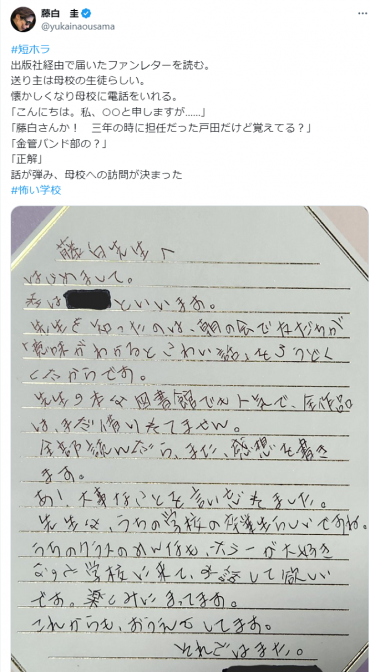 藤白 圭
@yukainaousama
#短ホラ
出版社経由で届いたファンレターを読む。
送り主は母校の生徒らしい。
懐かしくなり母校に電話をいれる。
「こんにちは。私、○○と申しますが……」
「藤白さんか！ 三年の時に担任だった戸田だけど覚えてる？」
「金管バンド部の？」
「正解」
話が弾み、母校への訪問が決まった
#怖い学校
藤白先生へ
はじめまして。
私は といいます。
先生を知ったのは、朝の会で友だちが
「意味がわかるとこわい話」をろうどく
したからです。
先生の本は図書館でも人気で、全作品
は、まだ借りれてません。
全部読んだら、また、感想を書き
ます。
あ！大事なことを言いわすれてました。
先生は、うちの学校の卒業生らしいですね。
うちのクラスのみんなも、ホラーが大好き
なので学校に来て、お話して欲しい
です。楽しみにまってます。
これからも、おうえんしてます。
それではまた。